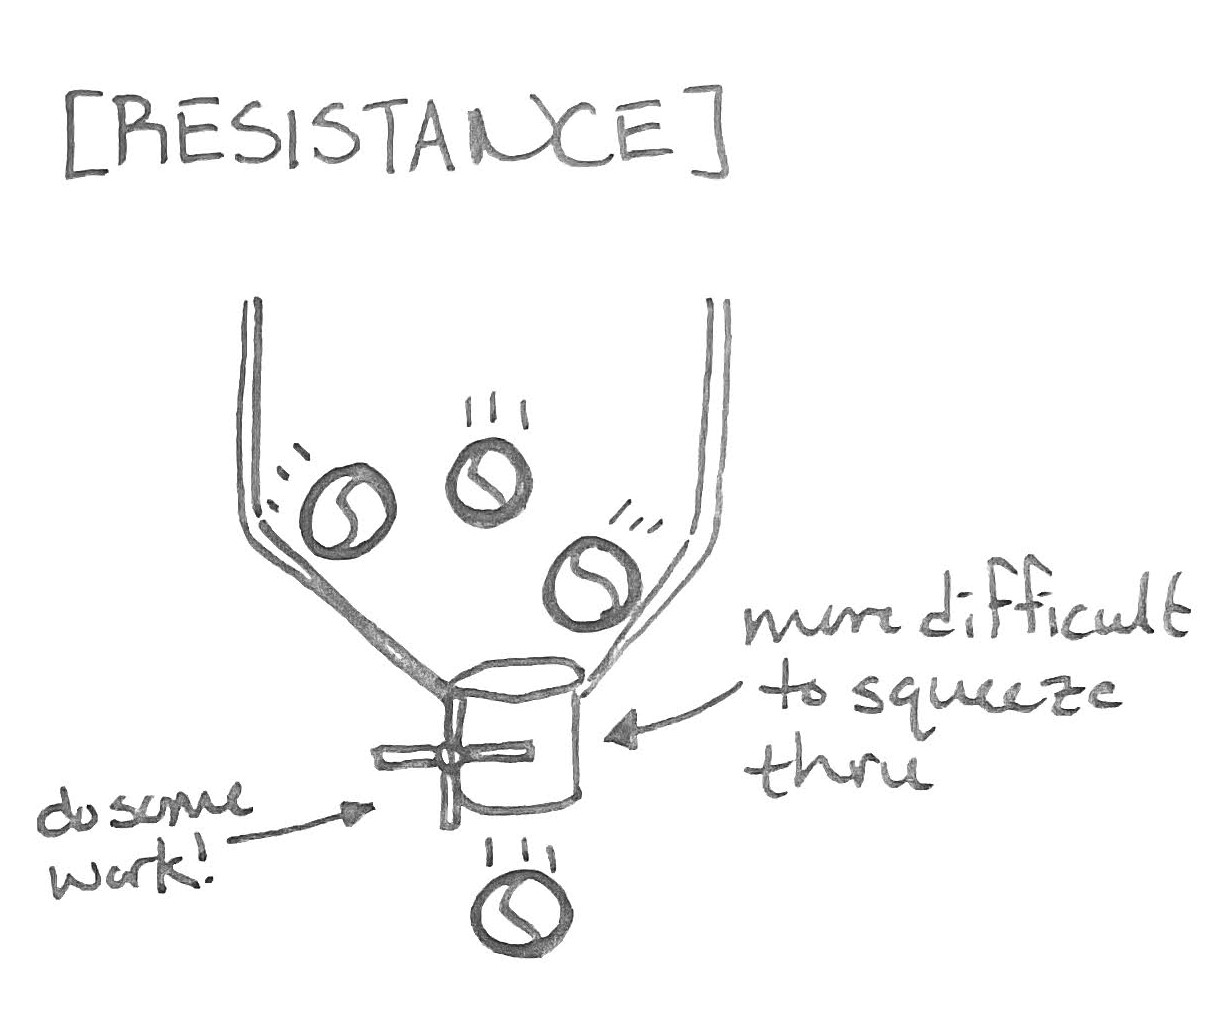 [RESISTANCE]
more difficult
to squeeze
thru
do some
work!